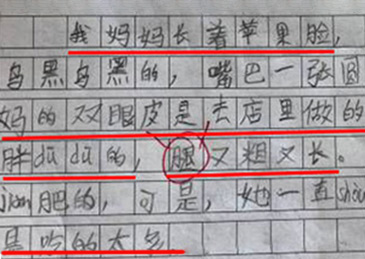 我妈妈长着苹果脸，
乌黑乌黑的，嘴巴一张圆
妈的双眼皮是去店里做的
胖dūdū的，腿又粗又长。
jiǎn肥的，可是，她一直shòu
是吃的太多